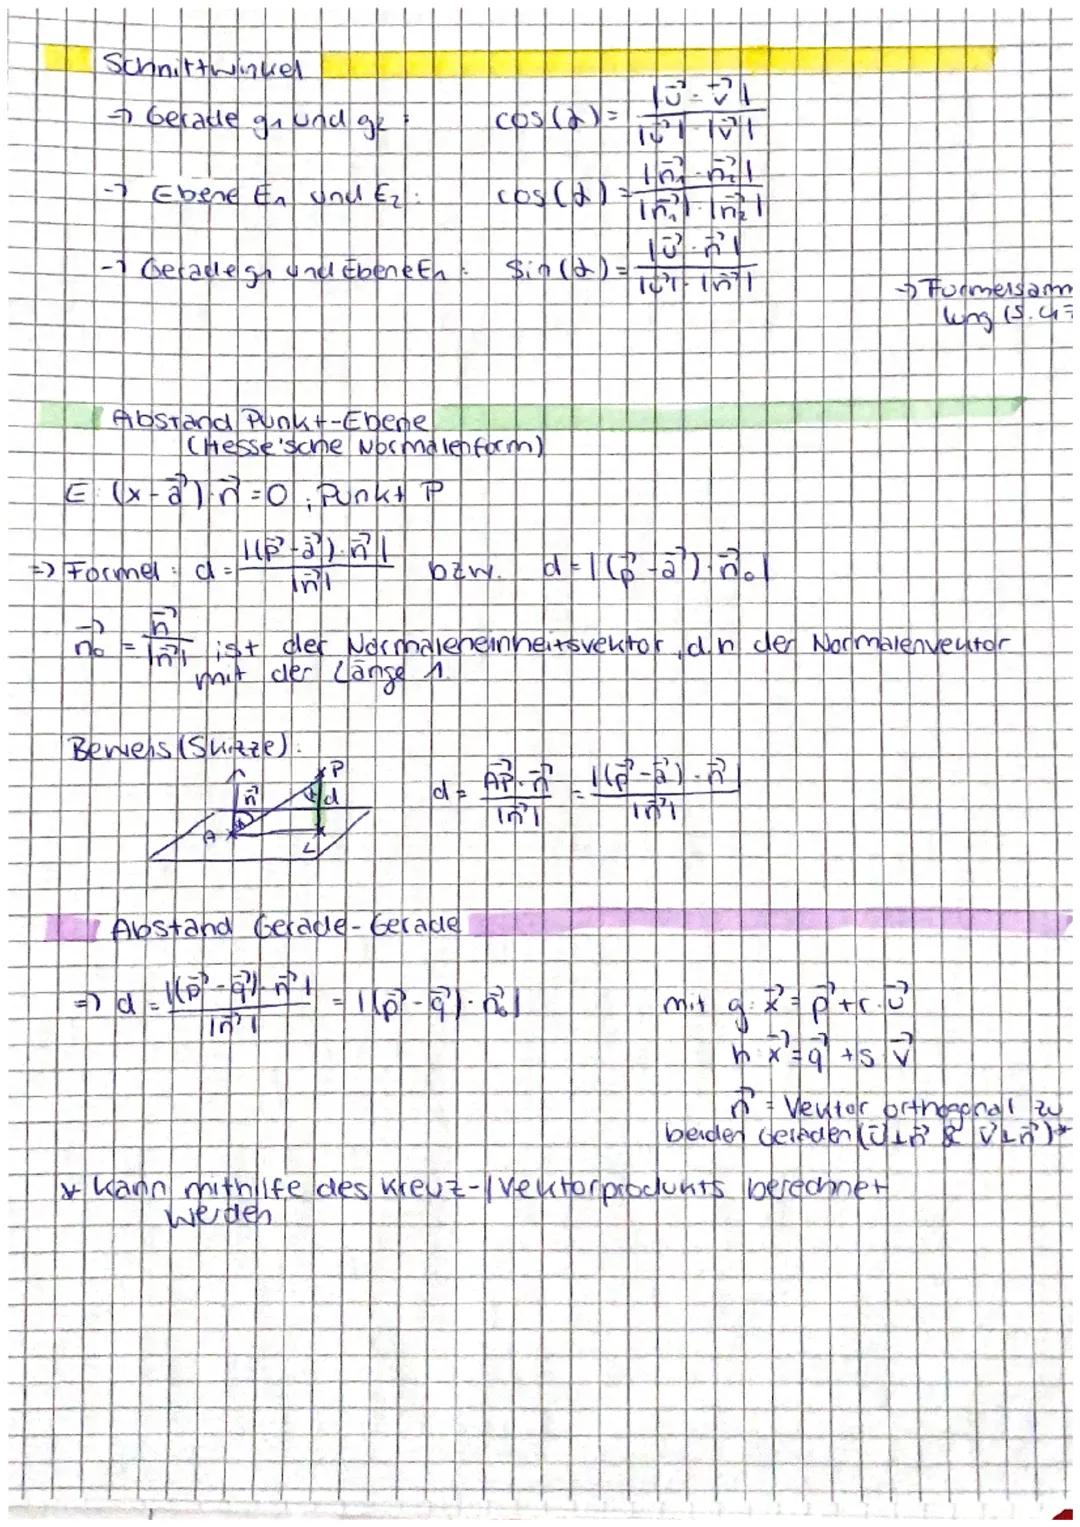 Schnittwinkel
→ Gerade g₁ und g₂ : cos(α) = |u⃗ · v⃗| / |u⃗| · |v⃗|
→ Ebene E₁ und E₂ : cos(α) = |n⃗₁ · n⃗₂| / |n⃗₁| · |n⃗₂|
→ Gerade g₁ und Ebene E₁ : sin(α) = |u⃗ · n⃗| / |u⃗| · |n⃗|
→ Formelsamm
lung (S. 47
Abstand Punkt-Ebene
(Hesse'sche Normalenform)
E: (x - a⃗) · n⃗ = 0 ; Punkt P
⇒ Formel : d = |(p⃗ - a⃗) · n⃗| / |n⃗| bzw. d = |(p⃗ - a⃗) · n⃗₀|
n⃗₀ = n⃗ / |n⃗| ist der Normaleneinheitsvektor, d.h der Normalenvektor
mit der Länge 1.
Beweis (Skizze):
P
n⃗ d
A
L
d = AP⃗ · n⃗ / |n⃗| = |(p⃗ - a⃗) · n⃗| / |n⃗|
Abstand Gerade-Gerade
⇒ d = |(p⃗ - q⃗) · n⃗| / |n⃗| = |(p⃗ - q⃗) · n⃗₀| mit g: x⃗ = p⃗ + r · u⃗
h: x⃗ = q⃗ + s v⃗
n⃗ = Vektor orthogonal zu
beiden Geraden (u⃗ ⊥ n⃗ & v⃗ ⊥ n⃗)*
* Kann mithilfe des Kreuz-/Vektorprodukts berechnet
werden